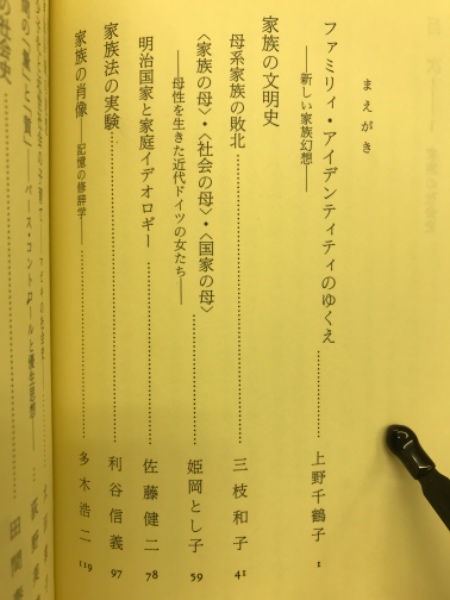 まえがき
ファミリィ・アイデンティティのゆくえ……上野千鶴子 1
——新しい家族幻想——
家族の文明史
母系家族の敗北……三枝和子 41
〈家族の母〉・〈社会の母〉・〈国家の母〉……姫岡とし子 59
——母性を生きた近代ドイツの女たち——
明治国家と家庭イデオロギー……佐藤健二 78
家族法の実験……利谷信義 97
家族の肖像——記憶の修辞学——……多木浩二 119
——バース・コントロールと優生思想——…荻野美
の社会史